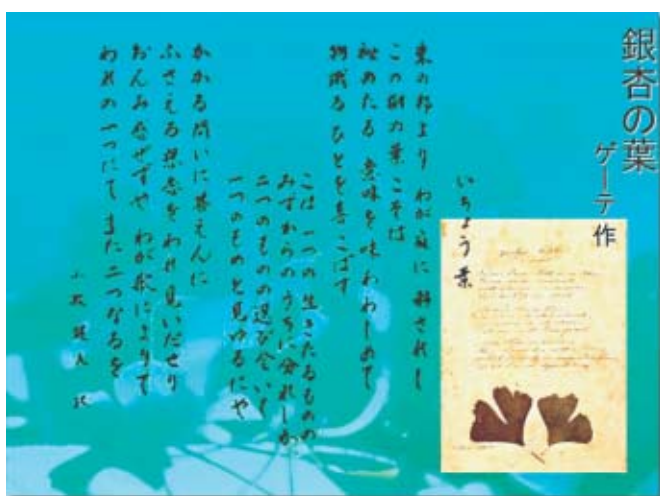 銀杏の葉
ゲーテ 作
いちょう葉
東の邦より わが庭に 移されし
この樹の葉 こそは
秘めたる 意味を味わわしめて
物識る ひとを喜こばす
こは 一つの 生きたるものの
みずからの うちに 分れしか
二つのものの 選び合いて
一つのものと 見ゆるにや
かかる問いに 答えんに
ふさえる 想念を われ見いだせり
おんみ感ぜずや わが歌によりて
われの一つにて また二つなるを